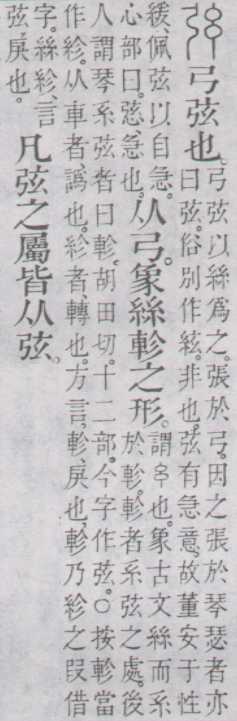 弓弦也。
弓弦以絲爲之。張於弓。因之張於琴瑟者亦
曰弦。俗別作絃。非也。弦有急意。故董安于性
緩、佩弦以自急。
心部曰。急也。
从弓。象絲軫之形。
謂也。象古文絲而系
於軫。軫者系弦之處。後
人謂琴系弦者曰軫。胡田切。十二部。今字作弦。○按軫當
作紾。从車者譌也。紾者、轉也。方言、軫、戾也。軫乃紾之叚借
字。絲紾、言
弦戾也。
凡弦之屬皆从弦。